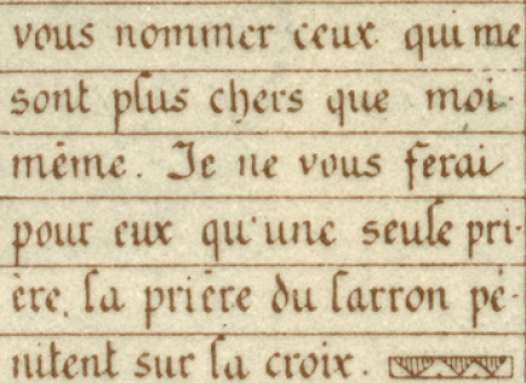 vous nommer ceux qui me
sont plus chers que moi-
même. Je ne vous ferai
pour eux qu'une seule pri-
ère, la prière du larron pé-
nitent sur la croix.